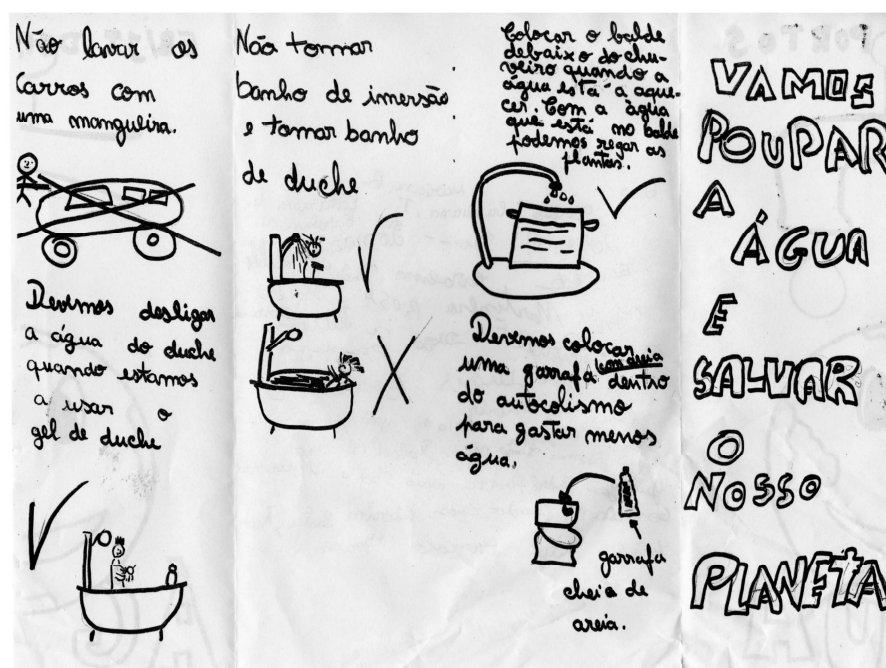 Não lavar os
Carros com
uma mangueira.
Devemos desligar
a água do duche
quando estamos
a usar o
gel de duche
Não tomar
banho de imersão
e tomar banho
de duche
Colocar o balde
debaixo do chu-
veiro quando a
água está a aque-
cer. Com a água
que está no balde
podemos regar as
plantas.
Devemos colocar
uma garrafa com areia dentro
do autocolismo
para gastar menos
água.
garrafa
cheia de
areia.
VAMOS
POUPAR
A
ÁGUA
E
SALVAR
O
NOSSO
PLANETA